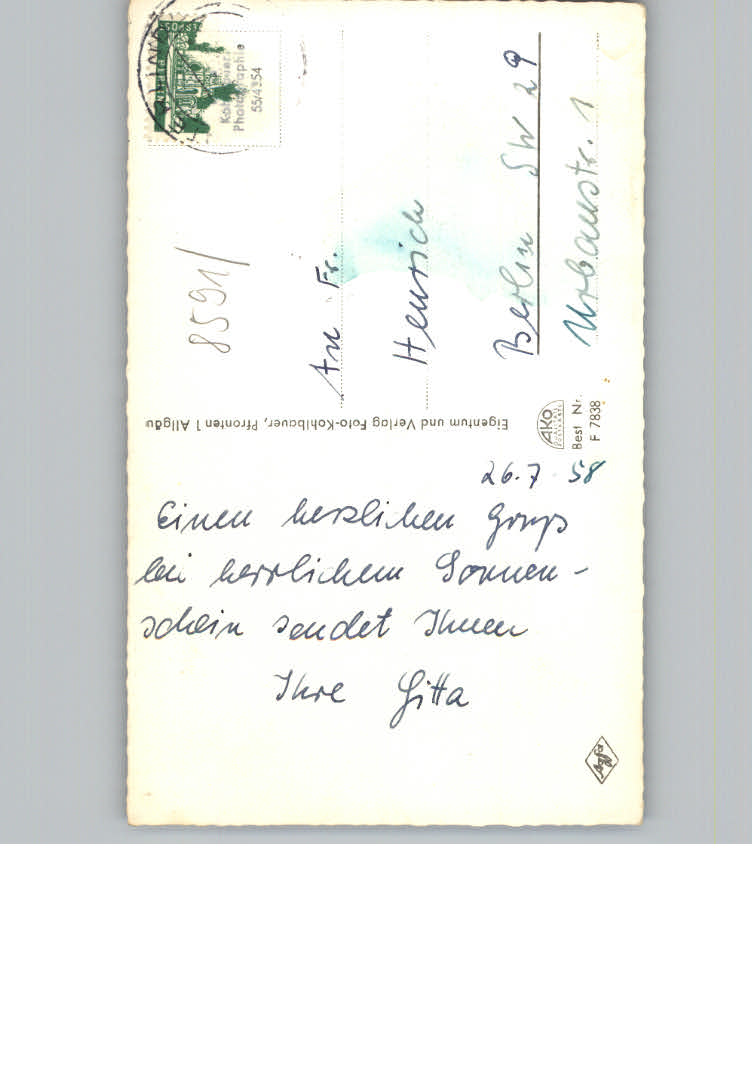 Kohlbauer
Photographie
55/4354
8591/
An Fr.
Henrich
Berlin SW 29
Urbanstr. 1
Eigentum und Verlag Foto-Kohlbauer, Pfronten 1 Allgäu
AKO
Best Nr.
F 7838
26.7.58
Einen herzlichen Gruß
bei herrlichem Sonnen-
schein sendet Ihnen
Ihre Gitta
Agfa